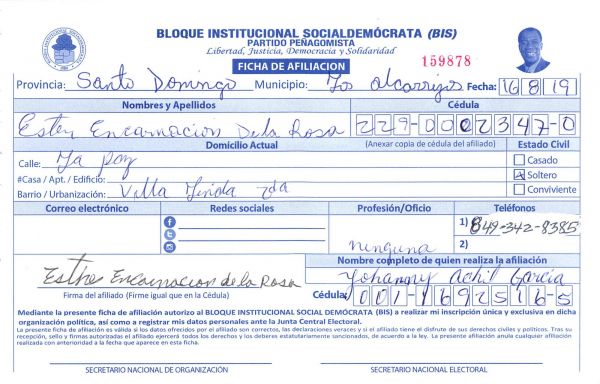 BLOQUE INSTITUCIONAL SOCIALDEMÓCRATA (BIS)
PARTIDO PEÑAGOMISTA
Libertad, Justicia, Democracia y Solidaridad
FICHA DE AFILIACION
159878
Provincia: Santo Domingo Municipio: Los alcarrizos Fecha: 16 8 19
Nombres y Apellidos Cédula
Ester Encarnacion De la Rosa 229-0002347-0
Domicilio Actual (Anexar copia de cédula del afiliado) Estado Civil
Calle: La paz Casado
#Casa / Apt. / Edificio: Soltero
Barrio / Urbanización: Villa Linda 2da Conviviente
Correo electrónico Redes sociales Profesión/Oficio Teléfonos
1) 849-342-8385
ninguna 2)
Nombre completo de quien realiza la afiliación
Esther Encarnacion de la Rosa Yohanny Achil Garcia
Firma del afiliado (Firme igual que en la Cédula) Cédula: 001-1692516-5
Mediante la presente ficha de afiliación autorizo al BLOQUE INSTITUCIONAL SOCIAL DEMÓCRATA (BIS) a realizar mi inscripción única y exclusiva en dicha
organización política, así como a registrar mis datos personales ante la Junta Central Electoral.
La presente ficha de afiliación es válida si los datos ofrecidos por el afiliado son correctos, las declaraciones veraces y si el afiliado tiene el disfrute de sus derechos civiles y políticos. Tras su
recepción, sello y firmas autorizadas el afiliado ejercerá todos los derechos y los deberes estatutariamente sancionados, de acuerdo a la ley. La presente afiliación anula cualquier afiliación
realizada con anterioridad a la fecha que aparece en esta ficha.
SECRETARIO NACIONAL DE ORGANIZACIÓN SECRETARIO NACIONAL ELECTORAL